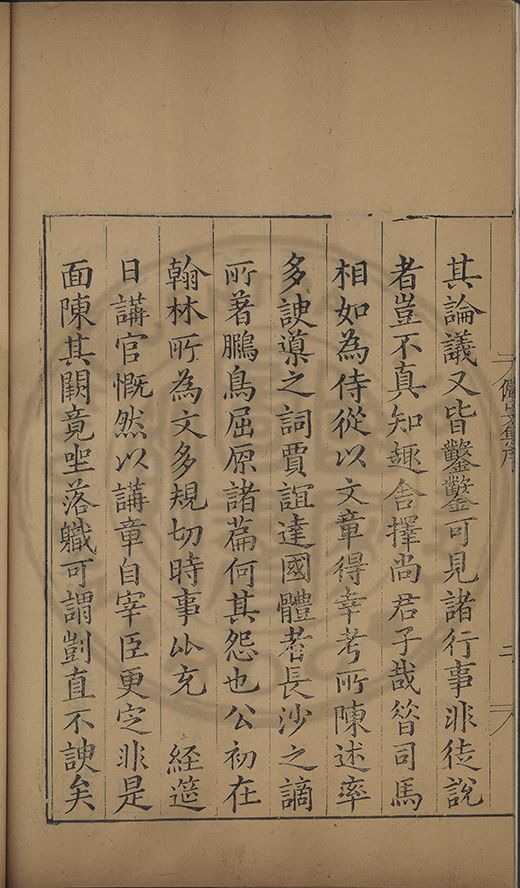 其論議又皆鑿鑿可見諸行事非徒說
者豈不真知趣舍擇尚君子哉昝司馬
相如為侍從以文章得幸考所陳述率
多諛導之詞賈誼達國體者長沙之謫
所著鵩鳥屈原諸篇何其怨也公初在
翰林所為文多規切時事以充 經筵
日講官慨然以講章自宰臣更定非是
面陳其闕竟坐落職可謂剴直不諛矣
集序
二